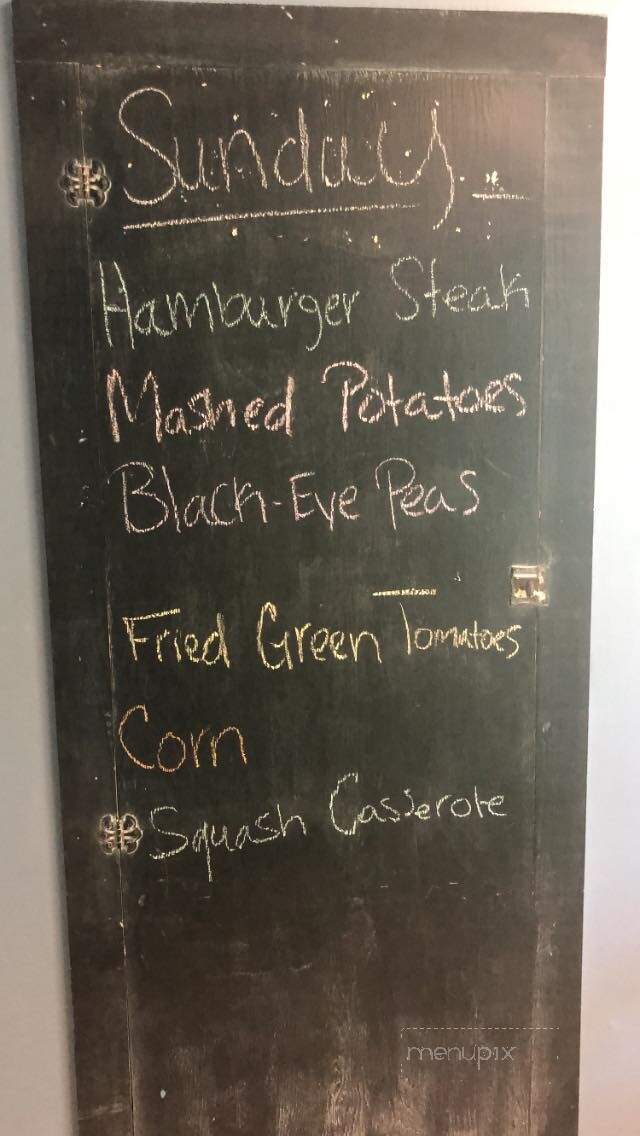 Sunday
Hamburger Steak
Mashed Potatoes
Black-Eye Peas
Fried Green Tomatoes
Corn
Squash Casserole
menupix